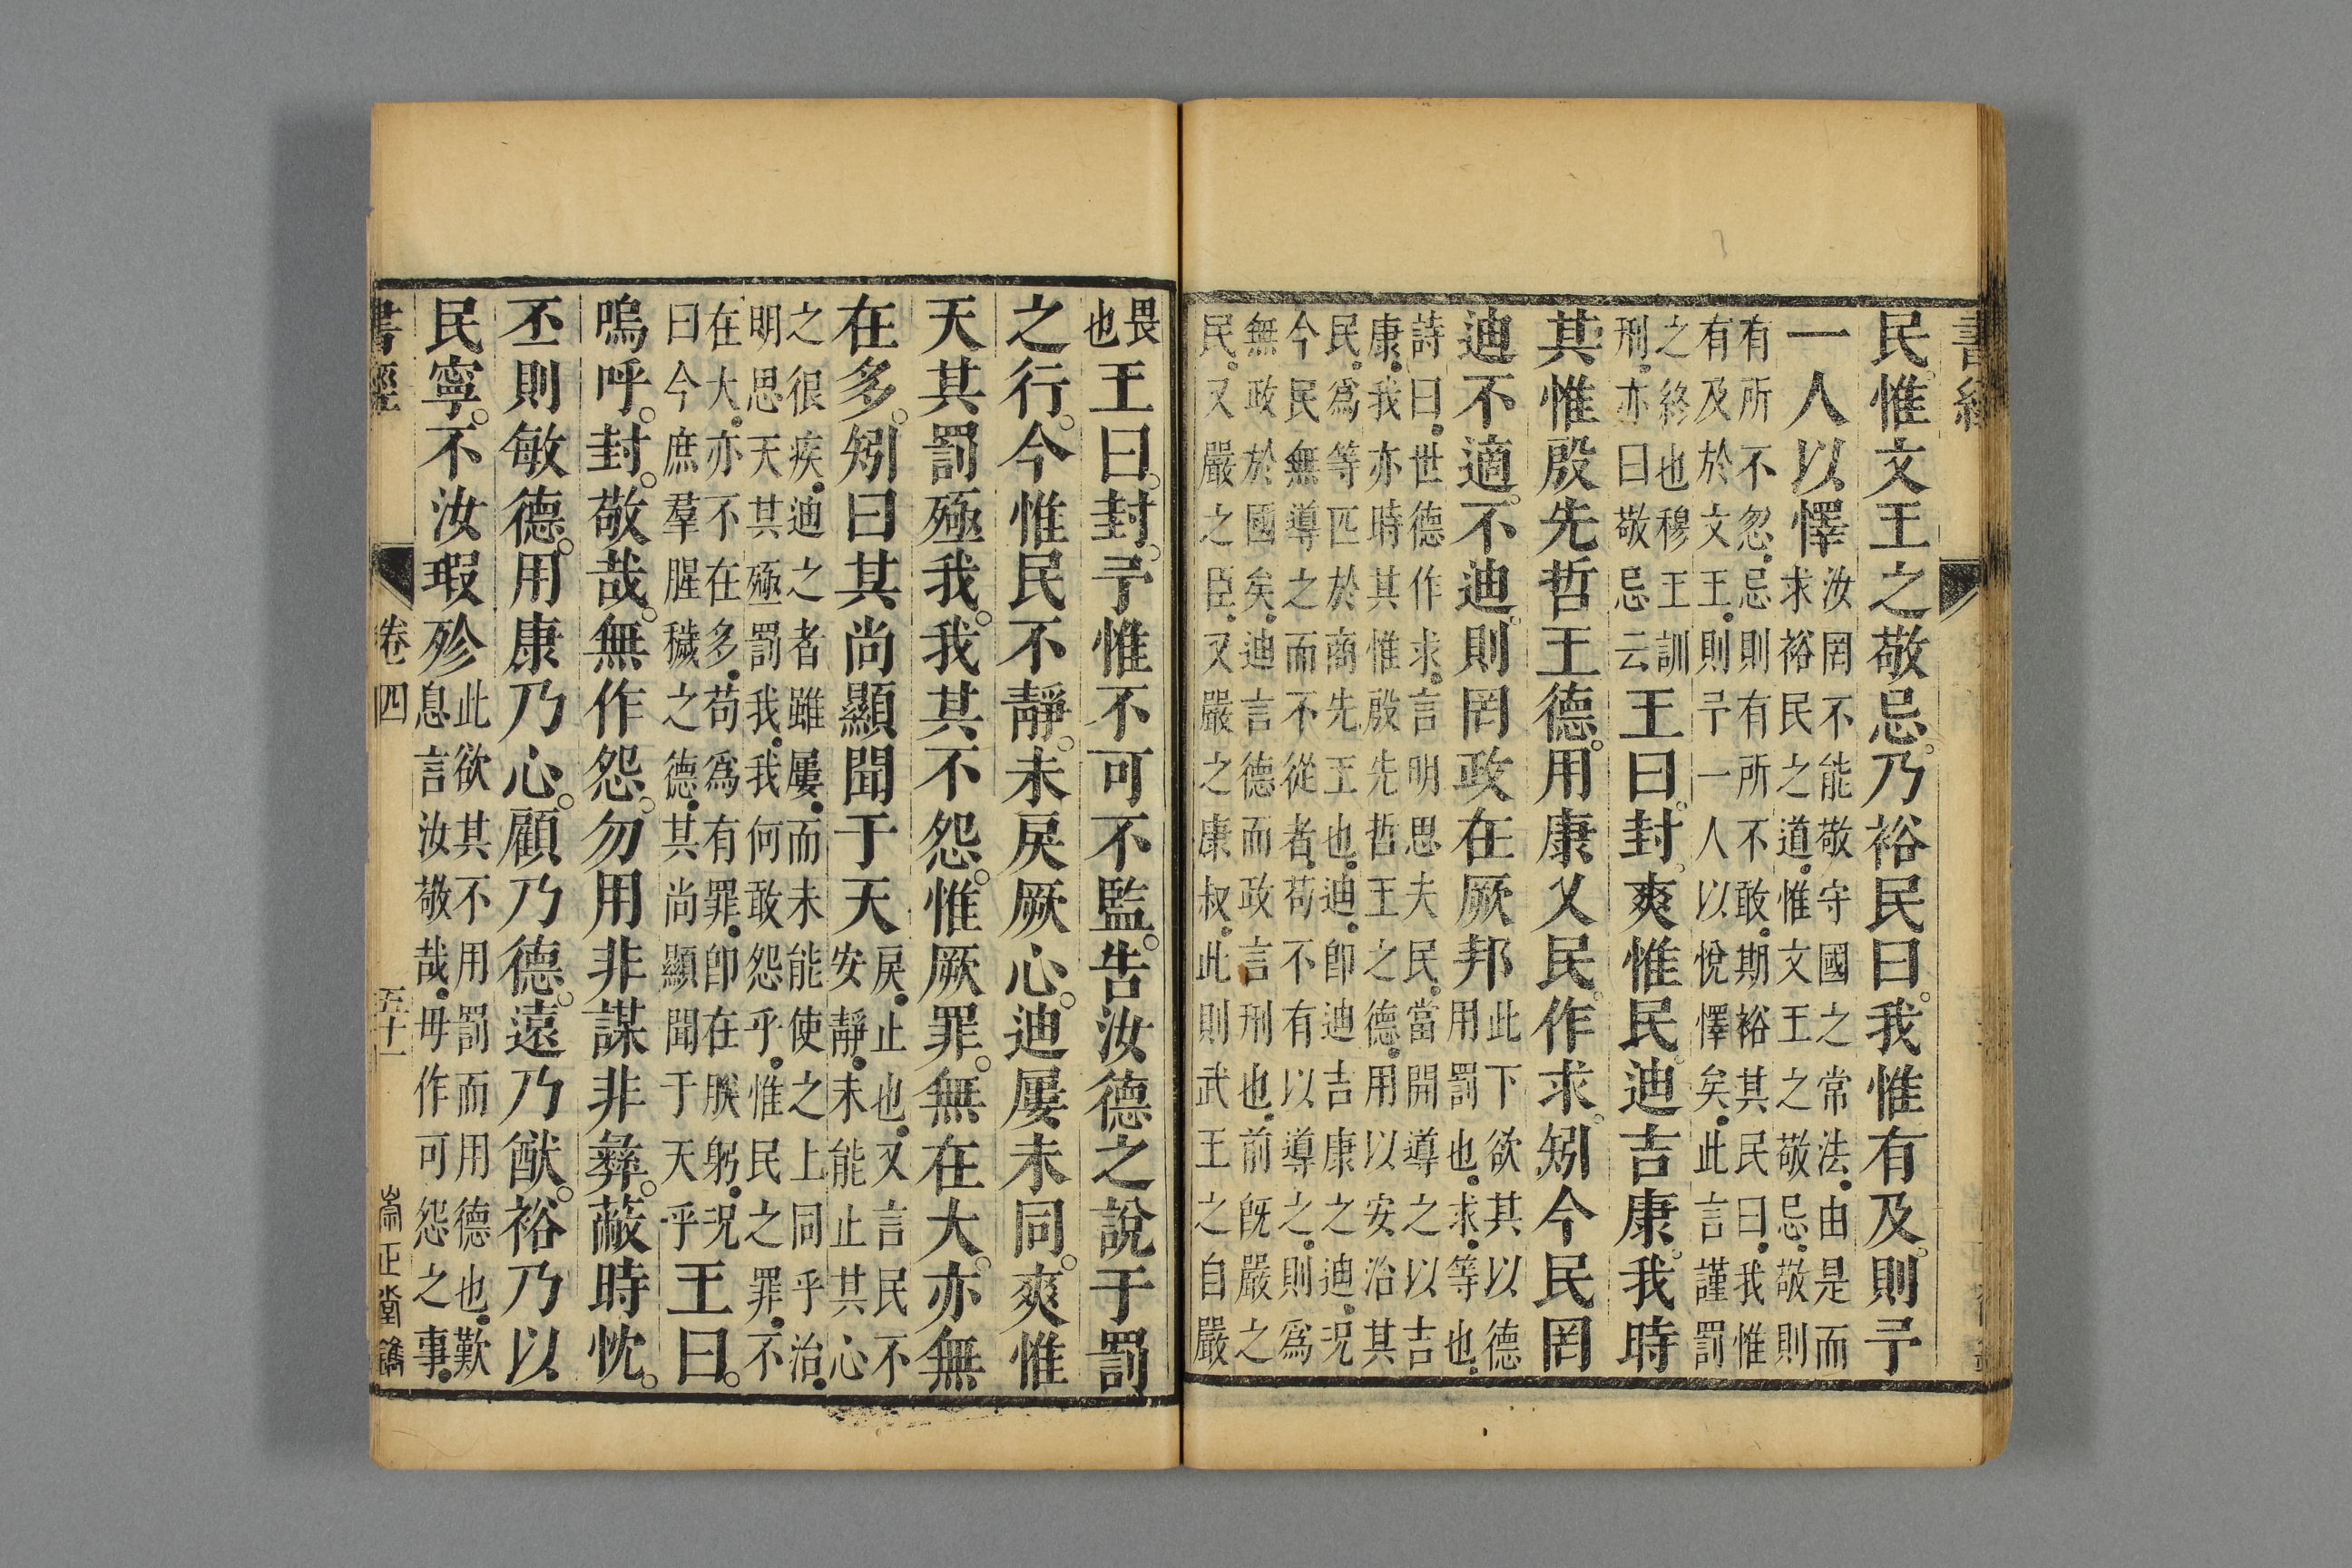 書經
民。惟文王之敬忌。乃裕民曰。我惟有及。則予
一人以懌
汝罔不能敬守國之常法。由是而
求裕民之道。惟文王之敬忌。敬則
有所不忽。忌則有所不敢。期裕其民曰。我惟
有及於文王。則予一人以悅懌矣。此言謹罰
之終也穆王訓
刑。亦曰敬忌云
王曰。封。爽惟民。迪吉康。我時
其惟殷先哲王德。用康乂民。作求。矧今民罔
迪不適。不迪。則罔政在厥邦
此下欲其以德
用罰也。求。等也。
詩曰。世德作求。言明思夫民。當開導之以吉
康。我亦時其惟殷先哲王之德。用以安治其
民。爲等匹於商先王也。迪。卽迪吉康之迪。况
今民無導之而不從者。苟不有以導之。則爲
無政於國矣。迪言德而政言刑也。前旣嚴之
民。又嚴之臣。又嚴之康叔。此則武王之自嚴
畏
也
王曰。封。予惟不可不監。告汝德之說于罰
之行。今惟民不靜。未戾厥心。迪屢未同。爽惟
天其罰殛我。我其不怨。惟厥罪。無在大。亦無
在多。矧曰其尚顯聞于天
戾。止也。又言民不
安靜。未能止其心
之很疾。迪之者雖屢。而未能使之上同乎治。
明思天其殛罰我。我何敢怨乎。惟民之罪。不
在大。亦不在多。苟爲有罪。卽在朕躬。况
曰今庶羣腥穢之德。其尚顯聞于天乎
王曰。
嗚呼。封。敬哉。無作怨。勿用非謀非彝。蔽時忱。
丕則敏德。用康乃心。顧乃德。遠乃猷。裕乃以
民寧。不汝瑕殄
此欲其不用罰而用德也。歎
息言汝敬哉。毋作可怨之事。
書經
卷四
五十一
崇正堂鐫